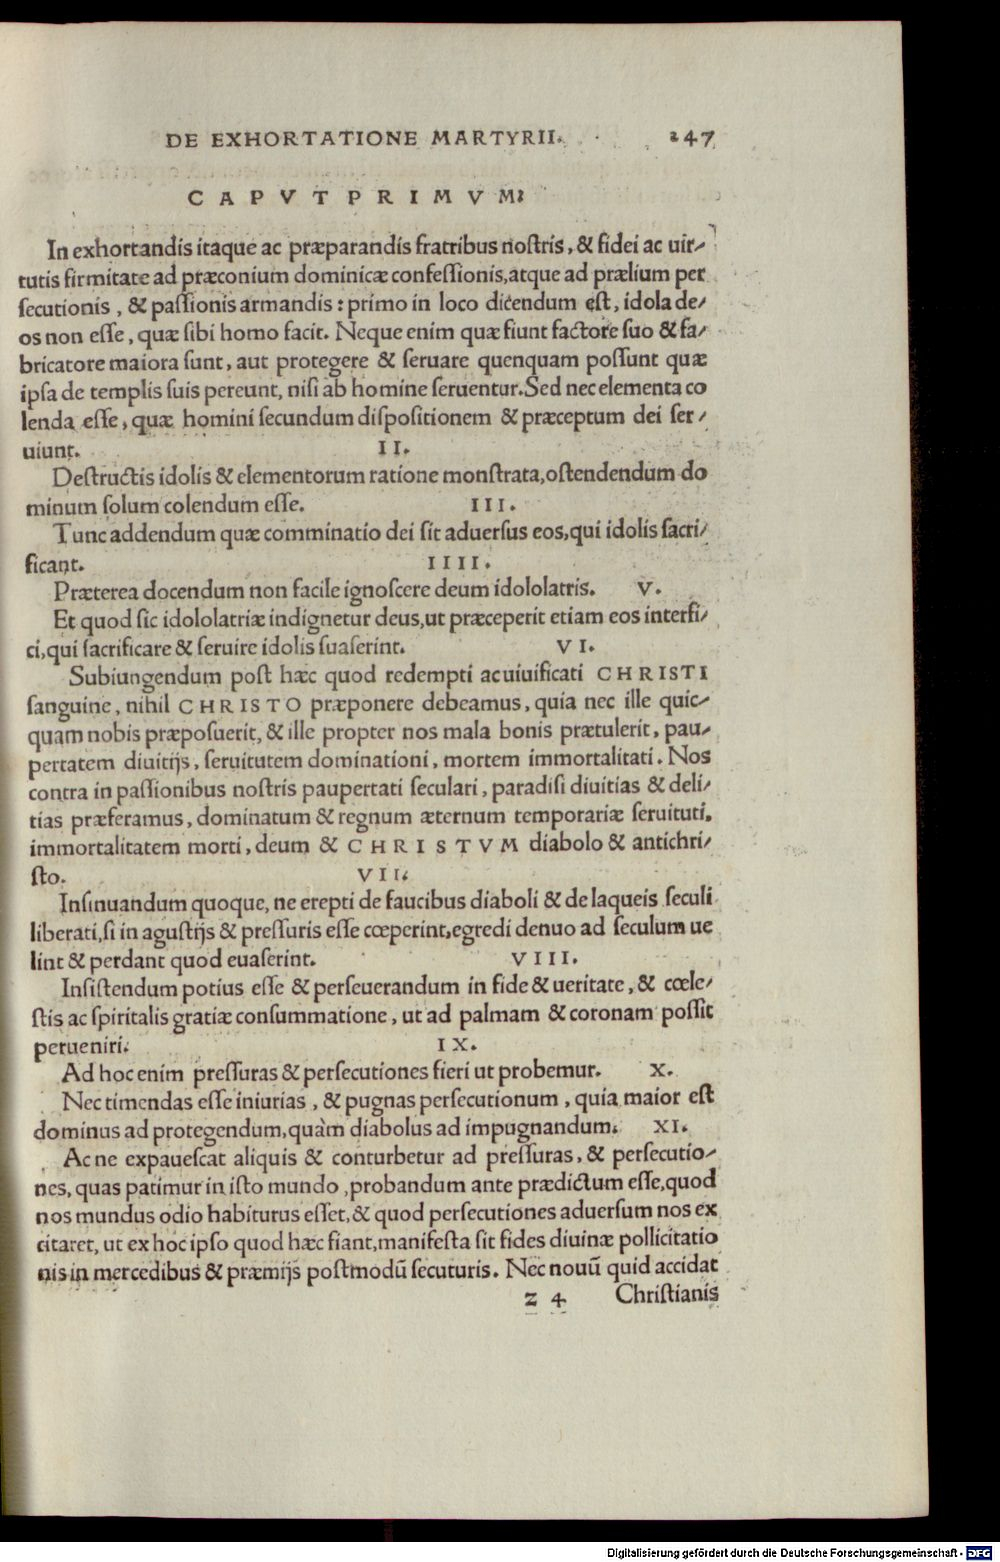 DE EXHORTATIONE MARTYRII. 247
CAPVT PRIMVM:
In exhortandis itaque ac præparandis fratribus nostris, & fidei ac uir/
tutis firmitate ad præconium dominicæ confessionis, atque ad prælium per
secutionis, & passionis armandis: primo in loco dicendum est, idola de/
os non esse, quæ sibi homo facit. Neque enim quæ fiunt factore suo & fa/
bricatore maiora sunt, aut protegere & seruare quenquam possunt quæ
ipsa de templis suis pereunt, nisi ab homine seruentur. Sed nec elementa co
lenda esse, quæ homini secundum dispositionem & præceptum dei ser/
uiunt. II.
Destructis idolis & elementorum ratione monstrata, ostendendum do
minum solum colendum esse. III.
Tunc addendum quæ comminatio dei sit aduersus eos, qui idolis sacri/
ficant. IIII.
Præterea docendum non facile ignoscere deum idololatris. V.
Et quod sic idololatriæ indignetur deus, ut præceperit etiam eos interfi/
ci, qui sacrificare & seruire idolis suaserint. VI.
Subiungendum post hæc quod redempti ac uiuificati CHRISTI
sanguine, nihil CHRISTO præponere debeamus, quia nec ille quic/
quam nobis præposuerit, & ille propter nos mala bonis prætulerit, pau/
pertatem diuitijs, seruitutem dominationi, mortem immortalitati. Nos
contra in passionibus nostris paupertati seculari, paradisi diuitias & deli/
tias præferamus, dominatum & regnum æternum temporariæ seruituti,
immortalitatem morti, deum & CHRISTVM diabolo & antichri/
sto. VII.
Insinuandum quoque, ne erepti de faucibus diaboli & de laqueis seculi
liberati, si in agustijs & pressuris esse cœperint, egredi denuo ad seculum ue
lint & perdant quod euaserint. VIII.
Insistendum potius esse & perseuerandum in fide & ueritate, & cœle/
stis ac spiritalis gratiæ consummatione, ut ad palmam & coronam possit
perueniri. IX.
Ad hoc enim pressuras & persecutiones fieri ut probemur. X.
Nec timendas esse iniurias, & pugnas persecutionum, quia maior est
dominus ad protegendum, quàm diabolus ad impugnandum. XI.
Ac ne expauescat aliquis & conturbetur ad pressuras, & persecutio/
nes, quas patimur in isto mundo, probandum ante prædictum esse, quod
nos mundus odio habiturus esset, & quod persecutiones aduersum nos ex
citaret, ut ex hoc ipso quod hæc fiant, manifesta sit fides diuinæ pollicitatio
nis in mercedibus & præmijs postmodū secuturis. Nec nouū quid accidat
z 4 Christianis
Digitalisierung gefördert durch die Deutsche Forschungsgemeinschaft - DFG